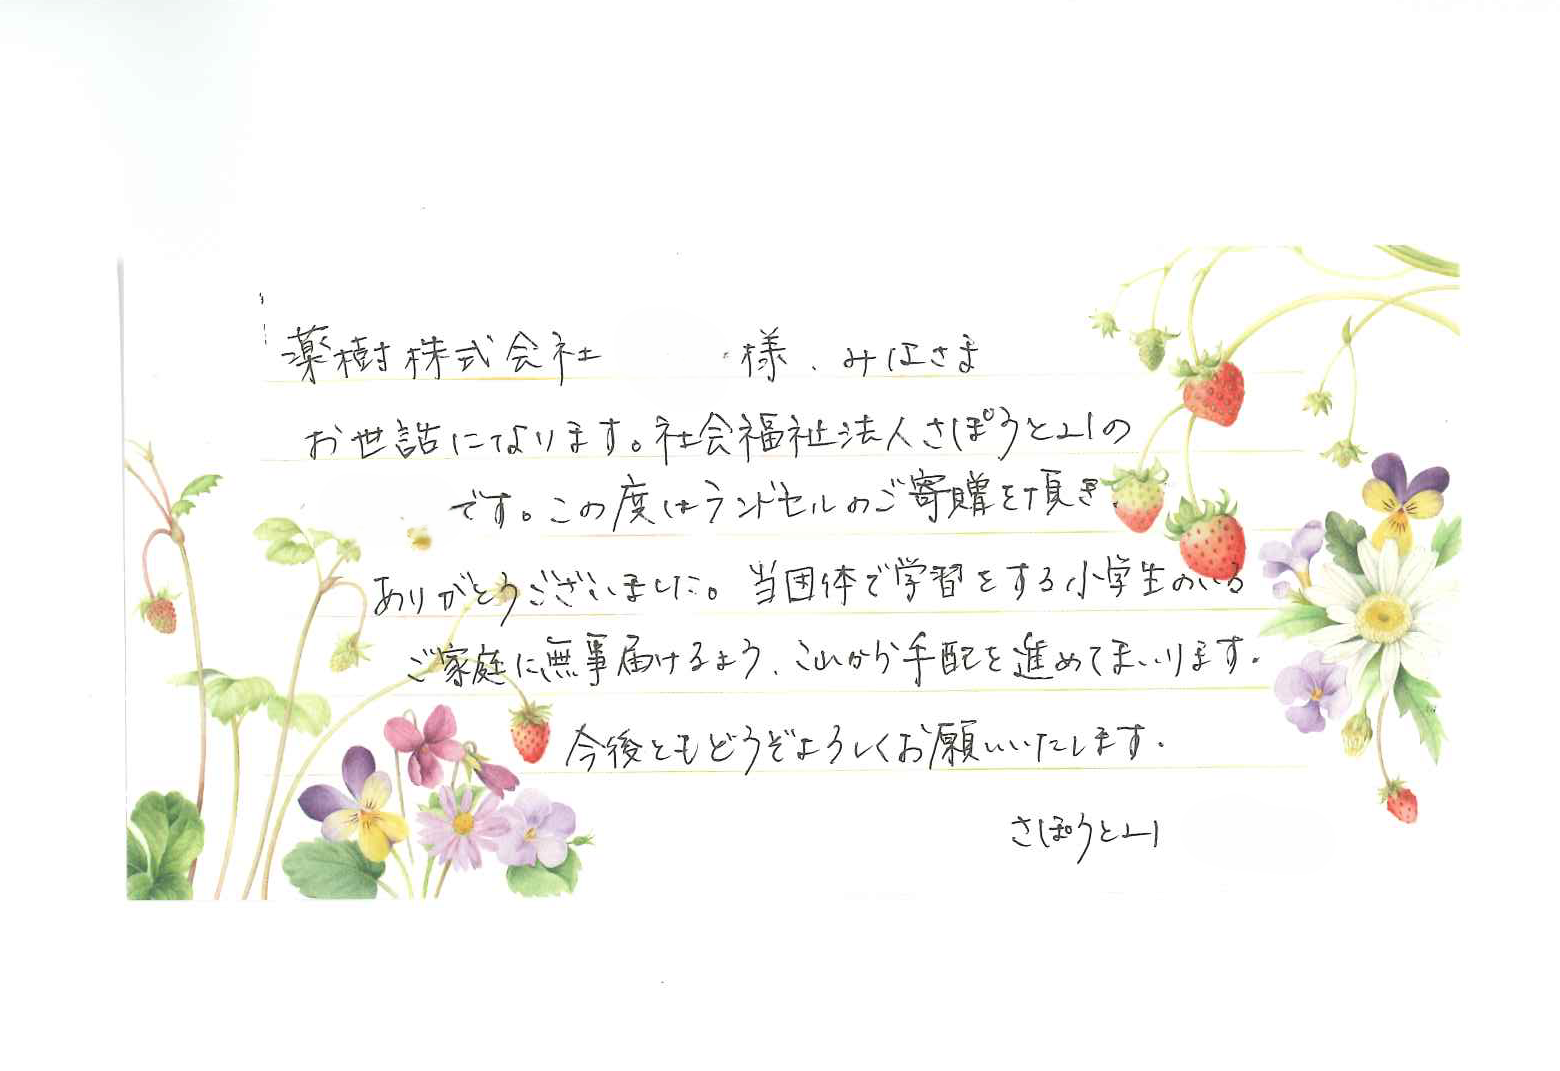 薬樹株式会社 様、みなさま
お世話になります。社会福祉法人さぽうと21の
です。この度はランドセルのご寄贈を頂き
ありがとうございました。当団体で学習をする小学生のいる
ご家庭に無事届けるよう、これから手配を進めてまいります。
今後ともどうぞよろしくお願いいたします。
さぽうと21